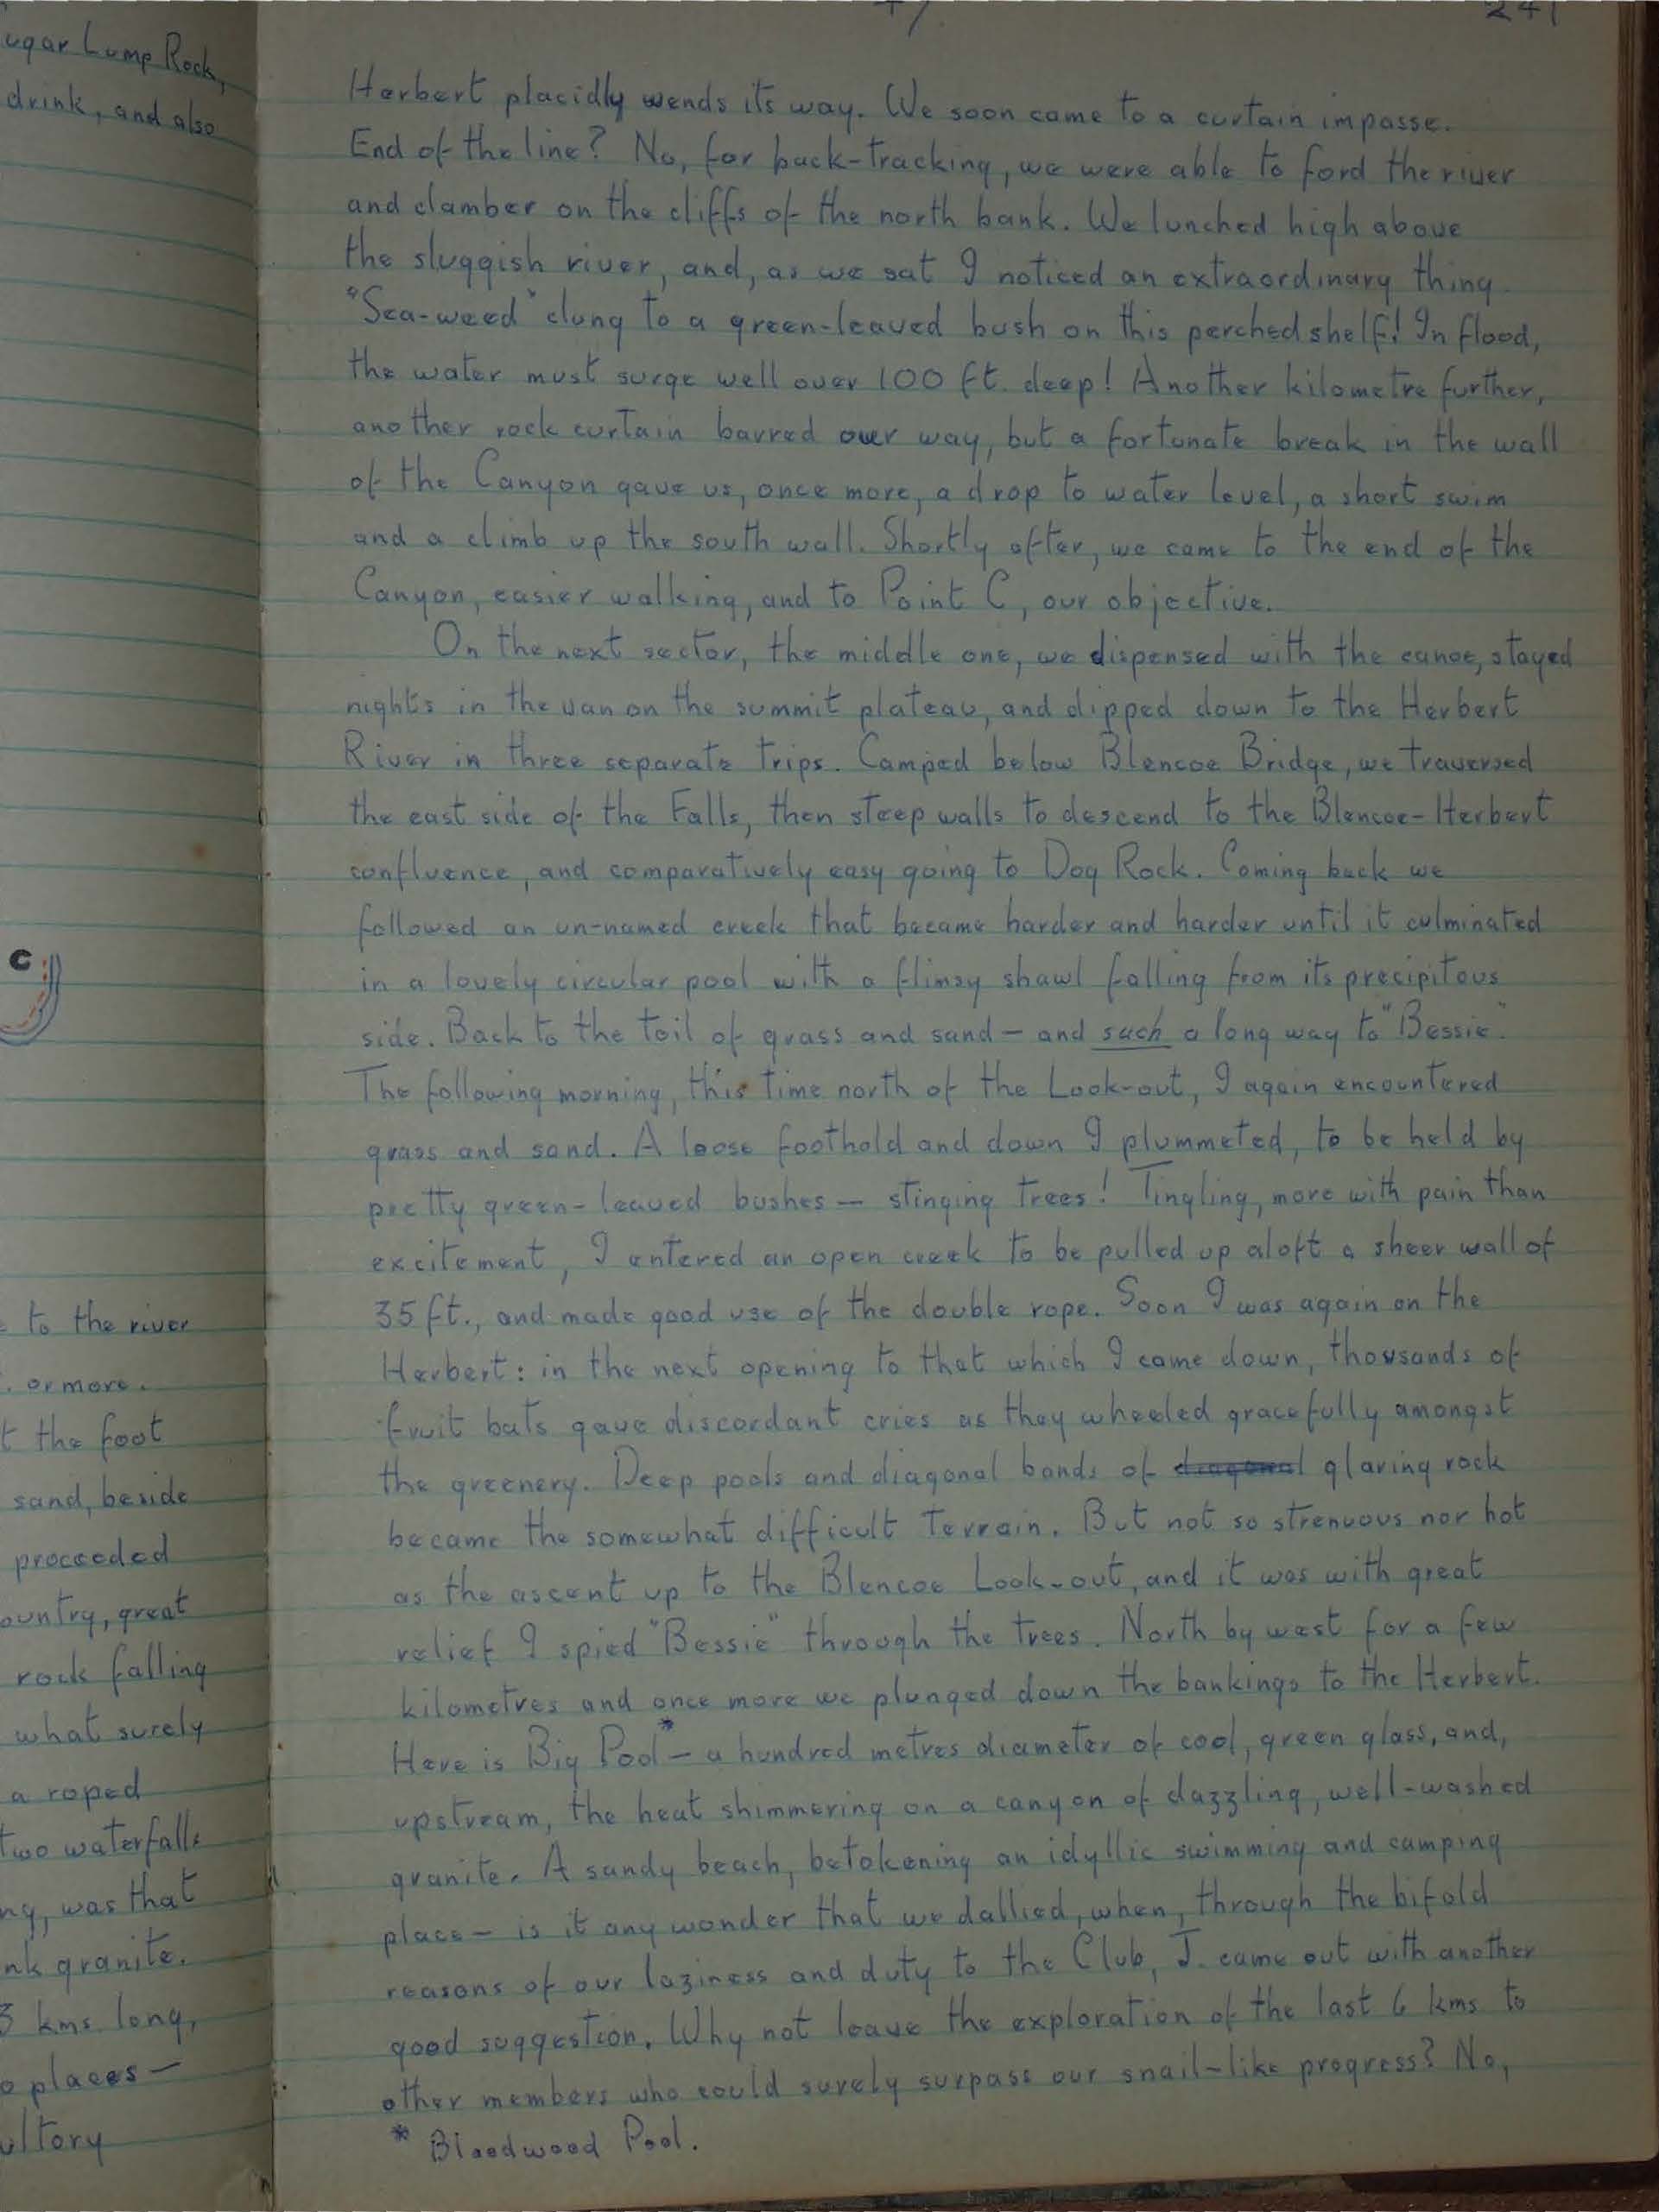 ugar Lump Rock,
drink, and also
C
to the river
. or more.
t the foot
sand, beside
proceeded
ountry, great
rock falling
what surely
a roped
two waterfalls
ng, was that
nk granite.
3 kms. long,
o places —
ultory
241
Herbert placidly wends its way. We soon came to a curtain impasse.
End of the line? No, for back-tracking, we were able to ford the river
and clamber on the cliffs of the north bank. We lunched high above
the sluggish river, and, as we sat I noticed an extraordinary thing
"Sea-weed" clung to a green-leaved bush on this perched shelf! In flood,
the water must surge well over 100 ft. deep! Another kilometre further,
another rock curtain barred our way, but a fortunate break in the wall
of the Canyon gave us, once more, a drop to water level, a short swim
and a climb up the south wall. Shortly after, we came to the end of the
Canyon, easier walking, and to Point C, our objective.
On the next sector, the middle one, we dispensed with the canoe, stayed
nights in the van on the summit plateau, and dipped down to the Herbert
River in three separate trips. Camped below Blencoe Bridge, we traversed
the east side of the Falls, then steep walls to descend to the Blencoe-Herbert
confluence, and comparatively easy going to Dog Rock. Coming back we
followed an un-named creek that became harder and harder until it culminated
in a lovely circular pool with a flimsy shawl falling from its precipitous
side. Back to the toil of grass and sand — and such a long way to "Bessie".
The following morning, this time north of the Look-out, I again encountered
grass and sand. A loose foothold and down I plummeted, to be held by
pretty green-leaved bushes — stinging trees! Tingling, more with pain than
excitement, I entered an open creek to be pulled up aloft a sheer wall of
35 ft., and made good use of the double rope. Soon I was again on the
Herbert: in the next opening to that which I came down, thousands of
fruit bats gave discordant cries as they wheeled gracefully amongst
the greenery. Deep pools and diagonal bands of diagonal glaring rock
became the somewhat difficult terrain. But not so strenuous nor hot
as the ascent up to the Blencoe Look-out, and it was with great
relief I spied "Bessie" through the trees. North by west for a few
kilometres and once more we plunged down the bankings to the Herbert.
Here is Big Pool* — a hundred metres diameter of cool, green glass, and,
upstream, the heat shimmering on a canyon of dazzling, well-washed
granite. A sandy beach, betokening an idyllic swimming and camping
place — is it any wonder that we dallied, when, through the bifold
reasons of our laziness and duty to the Club, J. came out with another
good suggestion. Why not leave the exploration of the last 6 kms to
other members who could surely surpass our snail-like progress? No,
* Bloodwood Pool.